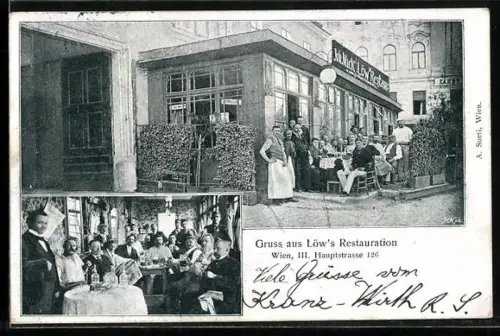 Löw's Restaur
A. Sarti, Wien.
Gruss aus Löw's Restauration
Wien, III. Hauptstrasse 126
Viele Grüsse vom
Kranz-Wirth R. S.